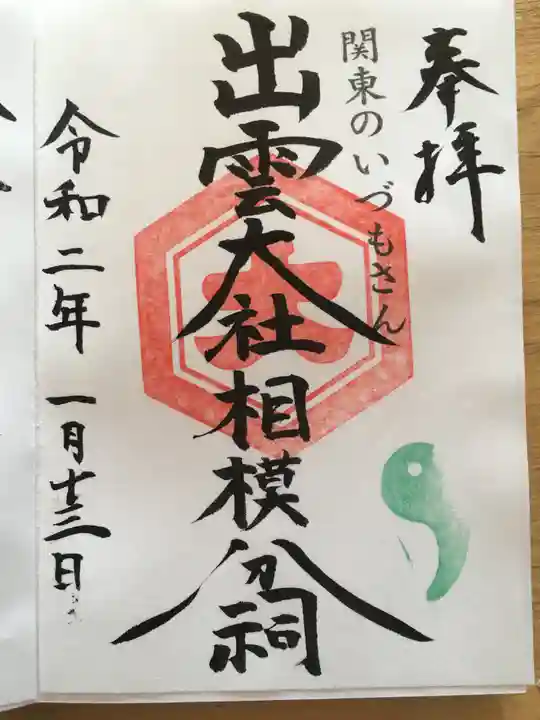 奉拝
関東のいづもさん
出雲大社相模分祠
令和二年 一月十三日
大